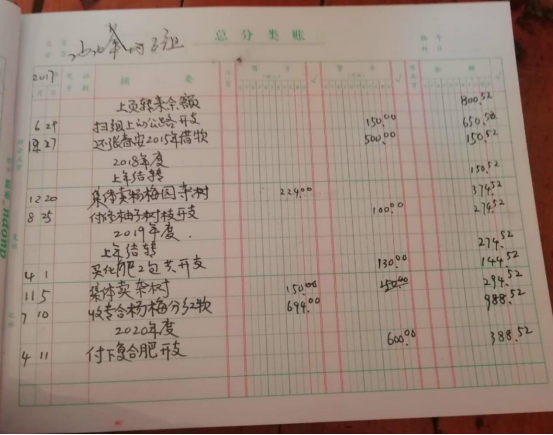 总分类账
2017
摘要
上页转来余额 800.52
6 29 扫组上的公路开支 150.00 650.52
12 27 还张春安2015年借款 500.00 150.52
2018年度
上年结转 150.52
12 20 集体卖杨梅园杂树 224.00 374.52
8 25 付修柚子树枝开支 100.00 274.52
2019年度
上年结转 274.52
4 1 买化肥2包共开支 130.00 144.52
11 5 集体卖杂树 150.00 150.00 294.52
7 10 收专合杨梅分红款 694.00 988.52
2020年度
4 11 付下复合肥开支 600.00 388.52